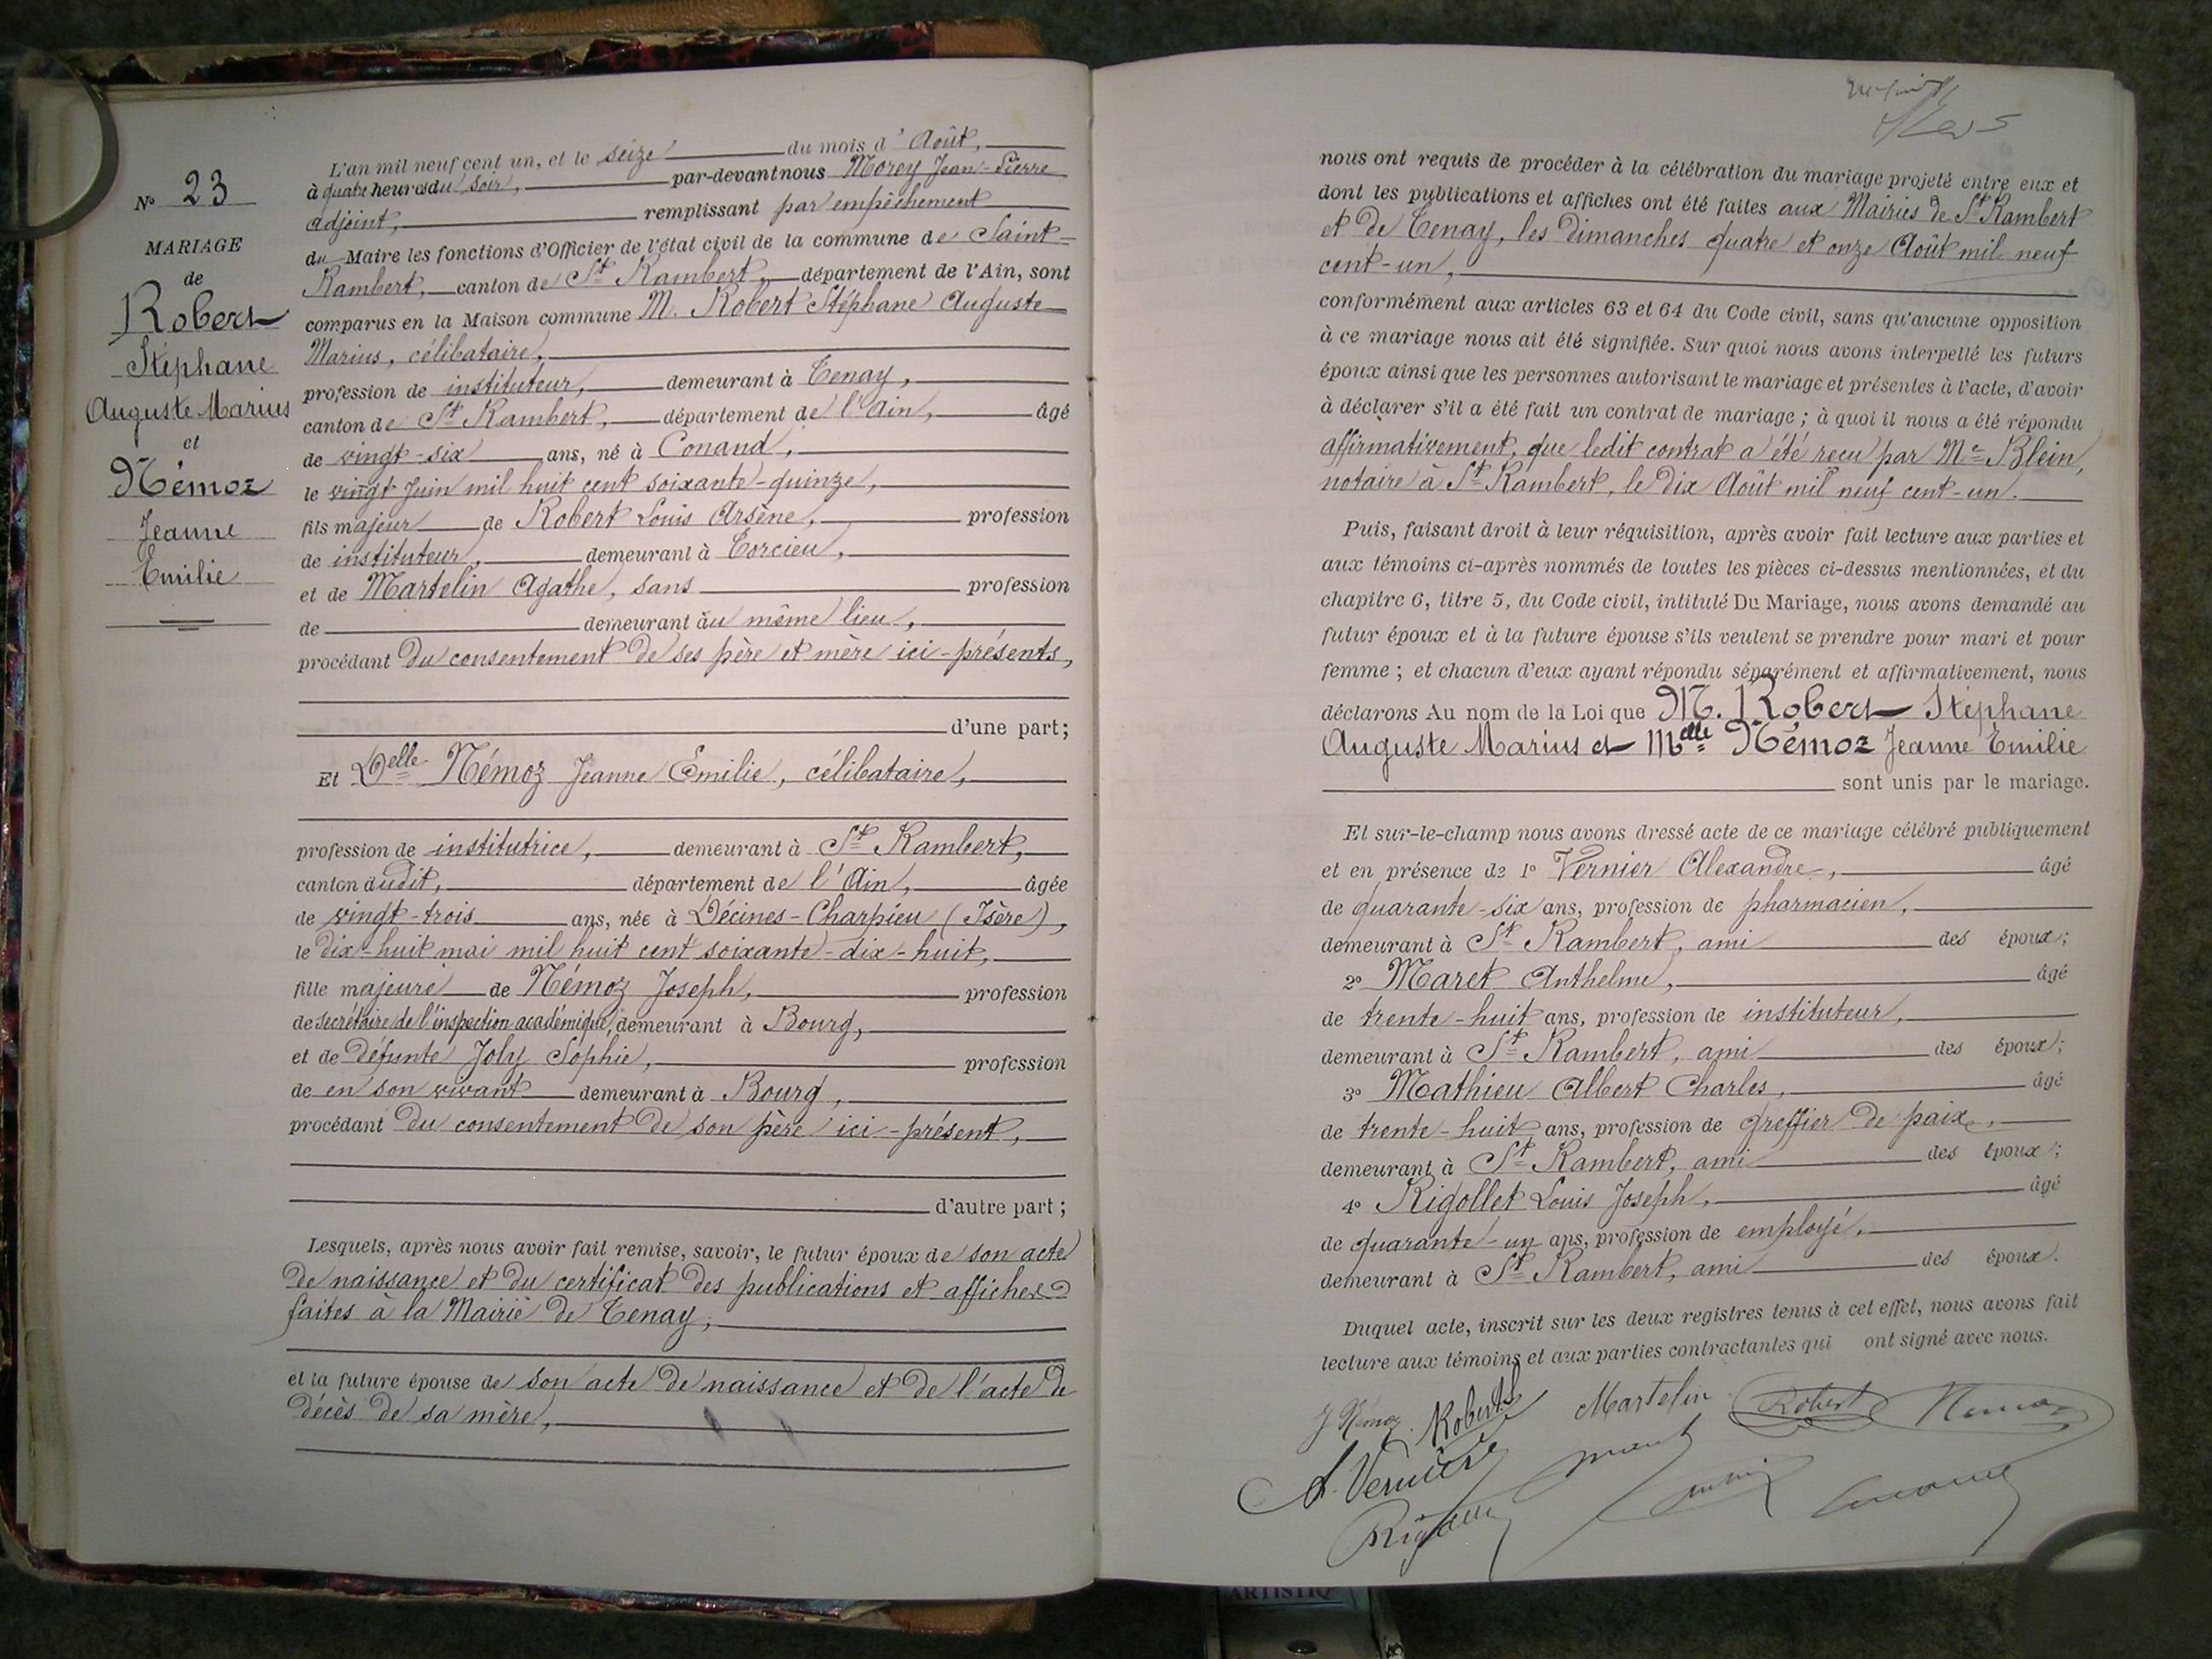 N° 23
MARIAGE
de
Robert
Stéphane
Auguste Marius
et
Némoz
Jeanne
Emilie
L'an mil neuf cent un, et le seize du mois d'Août,
à quatre heures du soir, par-devant nous Morey Jean-Pierre
adjoint, remplissant par empêchement
du Maire les fonctions d'Officier de l'état civil de la commune de Saint-
Rambert, canton de St Rambert, département de l'Ain, sont
comparus en la Maison commune M. Robert Stéphane Auguste
Marius, célibataire,
profession de instituteur, demeurant à Tenay,
canton de St Rambert, département de l'Ain, âgé
de vingt-six ans, né à Conand,
le vingt Juin mil huit cent soixante-quinze,
fils majeur de Robert Louis Arsène, profession
de instituteur, demeurant à Torcieu,
et de Martelin Agathe, sans profession
de demeurant au même lieu,
procédant du consentement de ses père et mère ici-présents,
d'une part;
Et Delle Némoz Jeanne Emilie, célibataire,
profession de institutrice, demeurant à St Rambert,
canton dudit, département de l'Ain, âgée
de vingt-trois ans, née à Décines-Charpieu (Isère),
le dix-huit mai mil huit cent soixante-dix-huit,
fille majeure de Némoz Joseph, profession
de secrétaire de l'inspection académique, demeurant à Bourg,
et de défunte Joly Sophie, profession
de en son vivant demeurant à Bourg,
procédant du consentement de son père ici-présent,
d'autre part;
Lesquels, après nous avoir fait remise, savoir, le futur époux de son acte
de naissance et du certificat des publications et affiches
faites à la Mairie de Tenay,
et la future épouse de son acte de naissance et de l'acte de
décès de sa mère,
nous ont requis de procéder à la célébration du mariage projeté entre eux et
dont les publications et affiches ont été faites aux Mairies de St Rambert
et de Tenay, les dimanches quatre et onze Août mil neuf
cent-un,
conformément aux articles 63 et 64 du Code civil, sans qu'aucune opposition
à ce mariage nous ait été signifiée. Sur quoi nous avons interpellé les futurs
époux ainsi que les personnes autorisant le mariage et présentes à l'acte, d'avoir
à déclarer s'il a été fait un contrat de mariage; à quoi il nous a été répondu
affirmativement, que ledit contrat a été reçu par Me Blein,
notaire à St Rambert, le dix Août mil neuf cent-un.
Puis, faisant droit à leur réquisition, après avoir fait lecture aux parties et
aux témoins ci-après nommés de toutes les pièces ci-dessus mentionnées, et du
chapitre 6, titre 5, du Code civil, intitulé Du Mariage, nous avons demandé au
futur époux et à la future épouse s'ils veulent se prendre pour mari et pour
femme; et chacun d'eux ayant répondu séparément et affirmativement, nous
déclarons Au nom de la Loi que M. Robert Stéphane
Auguste Marius et Melle Némoz Jeanne Emilie
sont unis par le mariage.
Et sur-le-champ nous avons dressé acte de ce mariage célébré publiquement
et en présence de 1° Vernier Alexandre, âgé
de quarante-six ans, profession de pharmacien,
demeurant à St Rambert, ami des époux;
2° Maret Anthelme, âgé
de trente-huit ans, profession de instituteur,
demeurant à St Rambert, ami des époux;
3° Mathieu Albert Charles, âgé
de trente-huit ans, profession de greffier de paix,
demeurant à St Rambert, ami des époux;
4° Rigollet Louis Joseph, âgé
de quarante-un ans, profession de employé,
demeurant à St Rambert, ami des époux.
Duquel acte, inscrit sur les deux registres tenus à cet effet, nous avons fait
lecture aux témoins et aux parties contractantes qui ont signé avec nous.
J Némoz Robert Martelin Robert Nemoz
A. Vernier
ARTISTIQ